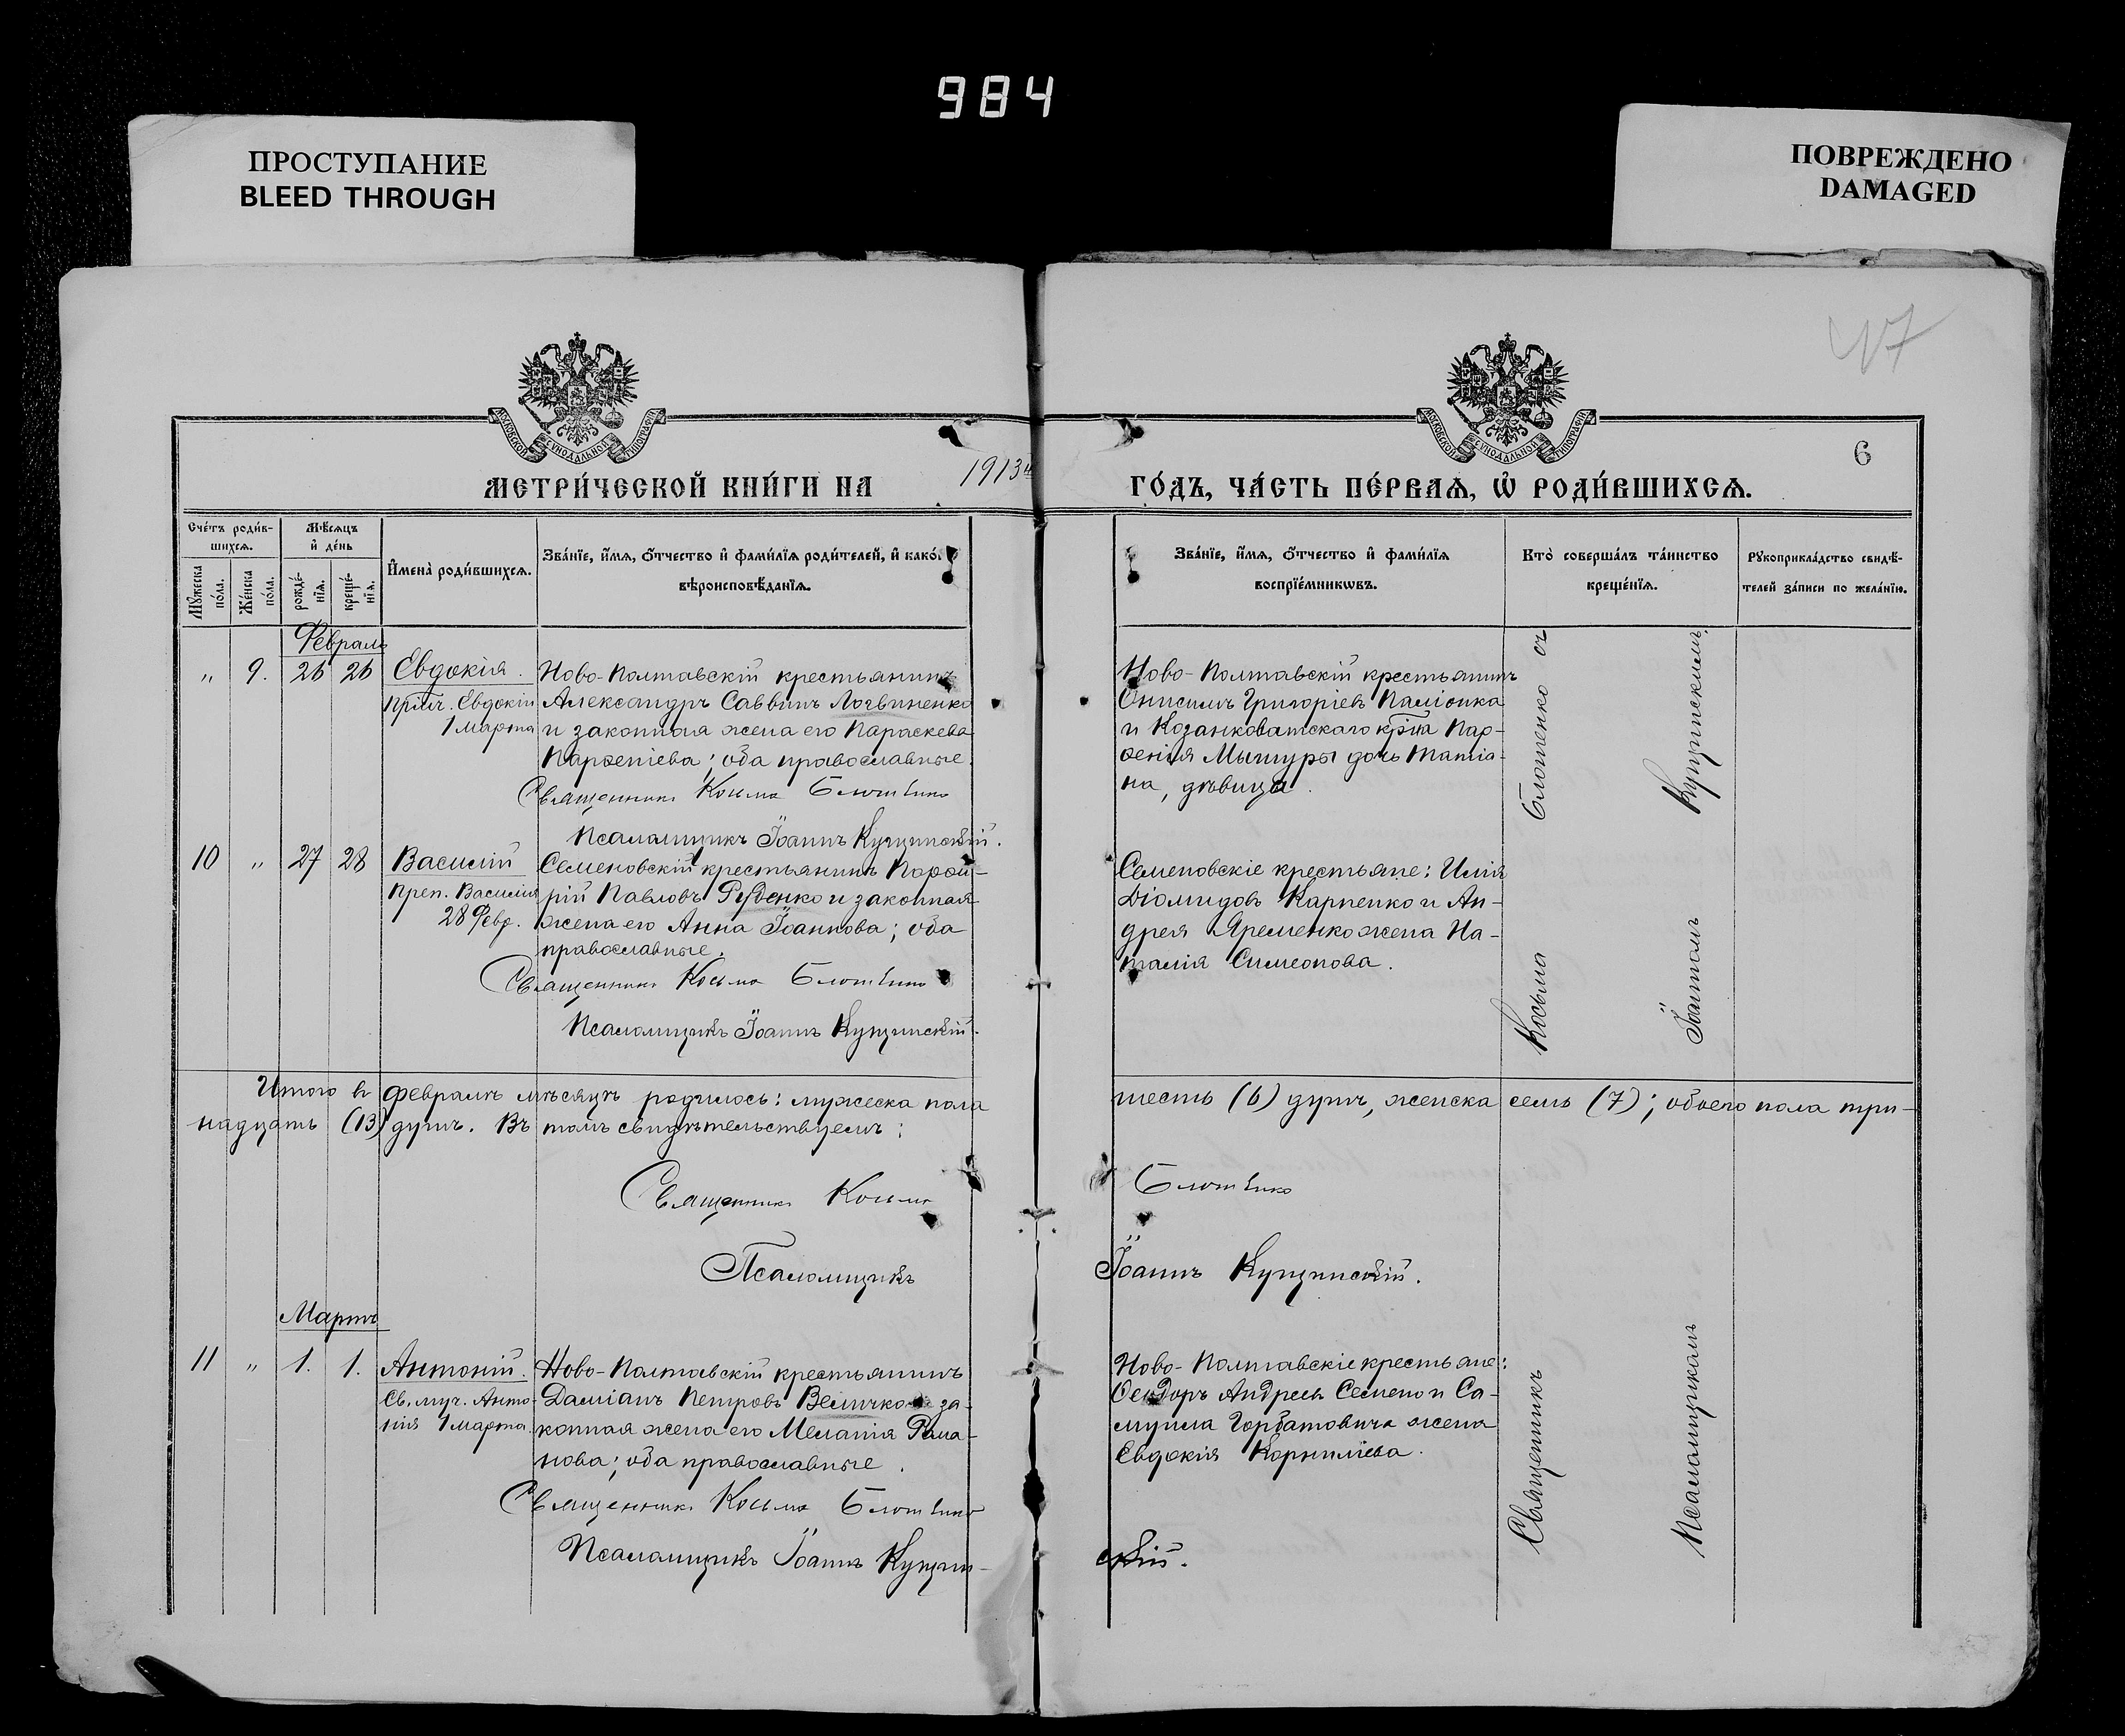 984
ПРОСТУПАНИЕ
BLEED THROUGH
ПОВРЕЖДЕНО
DAMAGED
47
МОСКОВСКОЙ СѴНОДАЛЬНОЙ ТИПОГРАФІИ
МОСКОВСКОЙ СѴНОДАЛЬНОЙ ТИПОГРАФІИ
6
МЕТРИ́ЧЕСКОЙ КНИ́ГИ НА 1913й ГО́ДЪ, ЧА́СТЬ ПЕ́РВАѦ, Ѡ҆ РОДИ́ВШИХСѦ.
Сче́тъ роди́в-
шихсѧ.
Мꙋ́жеска по́ла.
Же́нска по́ла.
Мѣ́сѧцъ
и҆ де́нь
рожде́-
нїѧ.
креще́-
нїѧ.
И҆мена̀ роди́вшихсѧ.
Зва́нїе, и҆́мѧ, ѻ҆́тчество и҆ фами́лїѧ роди́телей, и҆ како́гѡ
вѣроисповѣ́данїѧ.
Зва́нїе, и҆́мѧ, ѻ҆́тчество и҆ фами́лїѧ
воспрїе́мникѡвъ.
Кто̀ соверша́лъ та́инство
креще́нїѧ.
Рꙋкоприкла́дство свидѣ́-
телей за́писи по жела́нїю.
Февраль
„ 9. 26 26 Евдокія.
Прпмч. Евдокіи
1 марта
Ново-Полтавскій крестьянинъ
Александръ Саввинъ Логвиненко
и законная жена его Параскева
Парѳеніева; оба православные.
Священникъ Косьма Блотенко
Псаломщикъ Іоаннъ Кущинскій.
Ново-Полтавскій крестьянинъ
Онисимъ Григоріевъ
и Козанковатскаго кр-на Пар-
ѳенія дочь Татіа-
на, дѣвица.
10 „ 27 28 Василій
Преп. Василія
28 Февр.
Семеновскій крестьянинъ Порфи-
рій Павловъ Руденко и законная
жена его Анна Іоаннова; оба
православные.
Священникъ Косьма Блотенко
Псаломщикъ Іоаннъ Кущинскій.
Семеновскіе крестьяне: Илія
Діомидовъ Карпенко и Ан-
дрея Яременко жена На-
талія Симеонова.
Итого въ февралѣ мѣсяцѣ родилось: мужеска пола шесть (6) душъ, женска семь (7); обоего пола три-
надцать (13) душъ. Въ томъ свидѣтельствуемъ:
Священникъ Косьма Блотенко
Псаломщикъ Іоаннъ Кущинскій.
Мартъ
11 „ 1. 1. Антоній.
Св. муч. Анто-
нія 1 марта.
Ново-Полтавскій крестьянинъ
Даміанъ Петровъ Величко и за-
конная жена его Меланія Рома-
нова; оба православные.
Священникъ Косьма Блотенко
Псаломщикъ Іоаннъ Кущин-
скій.
Ново-Полтавскіе крестьяне:
Ѳеодоръ Андреевъ Семено и Са-
муила Горбатовича жена
Евдокія Корниліева.
Священникъ Косьма Блотенко съ
Псаломщикомъ Іоанномъ Кущинскимъ.